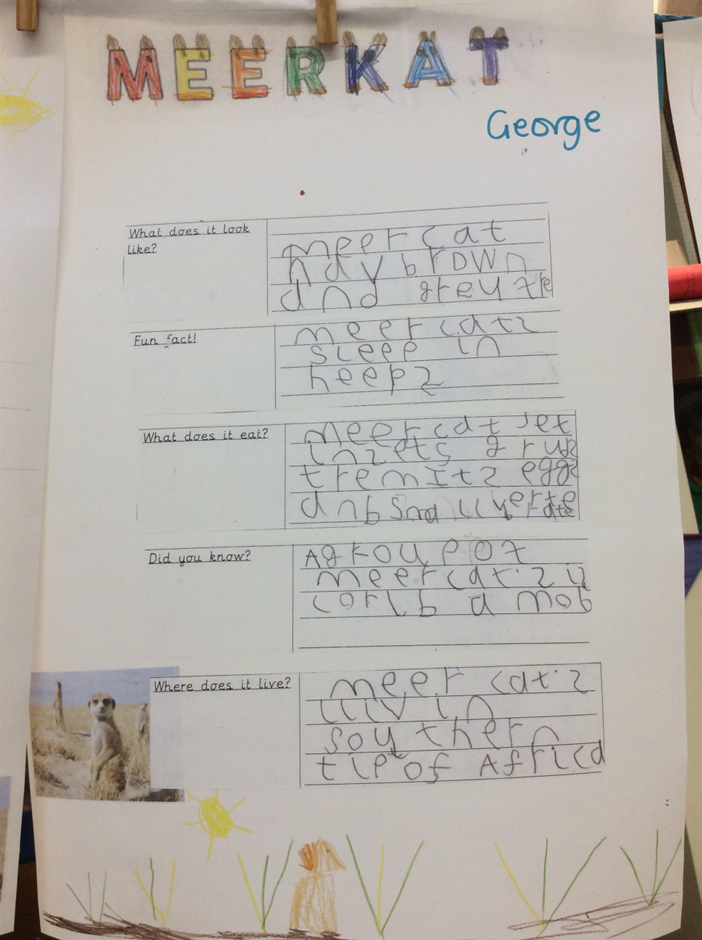 MEERKAT
George
What does it look
like?
meer cat
hav brown
and grey
Fun fact!
meer catz
sleep in
heepz
What does it eat?
meer cat
inzets grub
tremitz eggz
anb
Did you know?
A group of
meer catz iz
corlb a mob
Where does it live?
meer catz
liiv in
southern
tip of Africa